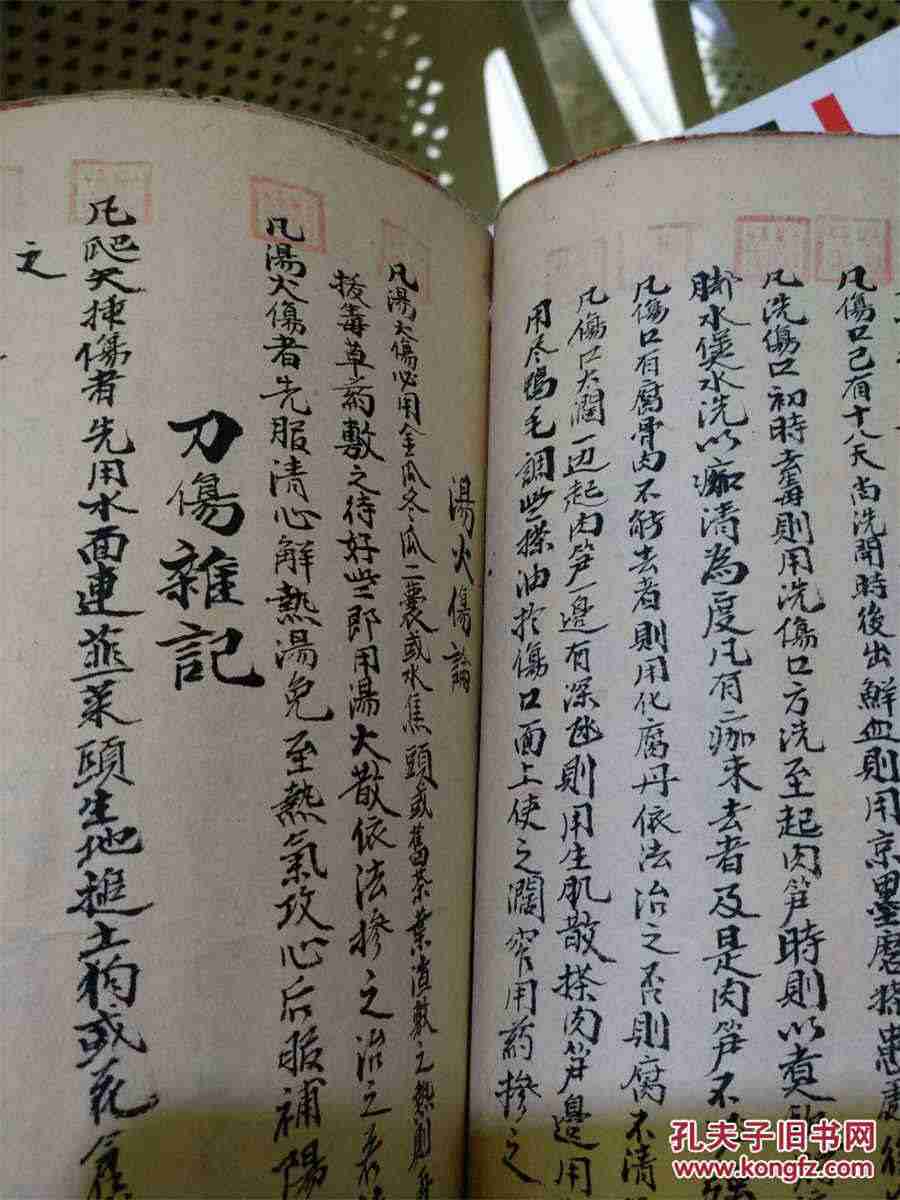 凡傷口已有十八天尚洗開時後出鮮血則用京墨磨搽患處
凡洗傷口初時毒則用洗傷口方洗至起肉笋時則以煮
脚水煲水洗以痂清為度凡有痂未去者及是肉笋不
凡傷口有腐骨肉不能去者則用化腐丹依法治之否則腐不清
凡傷口大濶一边起肉笋一邊有深氹則用生肌散搽肉笋邊用
用尽鴨毛調些搽油扵傷口面上使之濶窄用药摻之
湯火傷論
凡湯火傷必用金瓜冬瓜二囊或水蕉頭或舊茶葉渣敷之熱
拔毒草药敷之待好些即用湯火散依法摻之治之
凡湯火傷者先服清心解熱湯免至熱氣攻心后服補陽
刀傷雜記
凡 傷者先用水面連韮菜頭生地搥土狗或花
之
孔夫子旧书网
www.kongfz.com